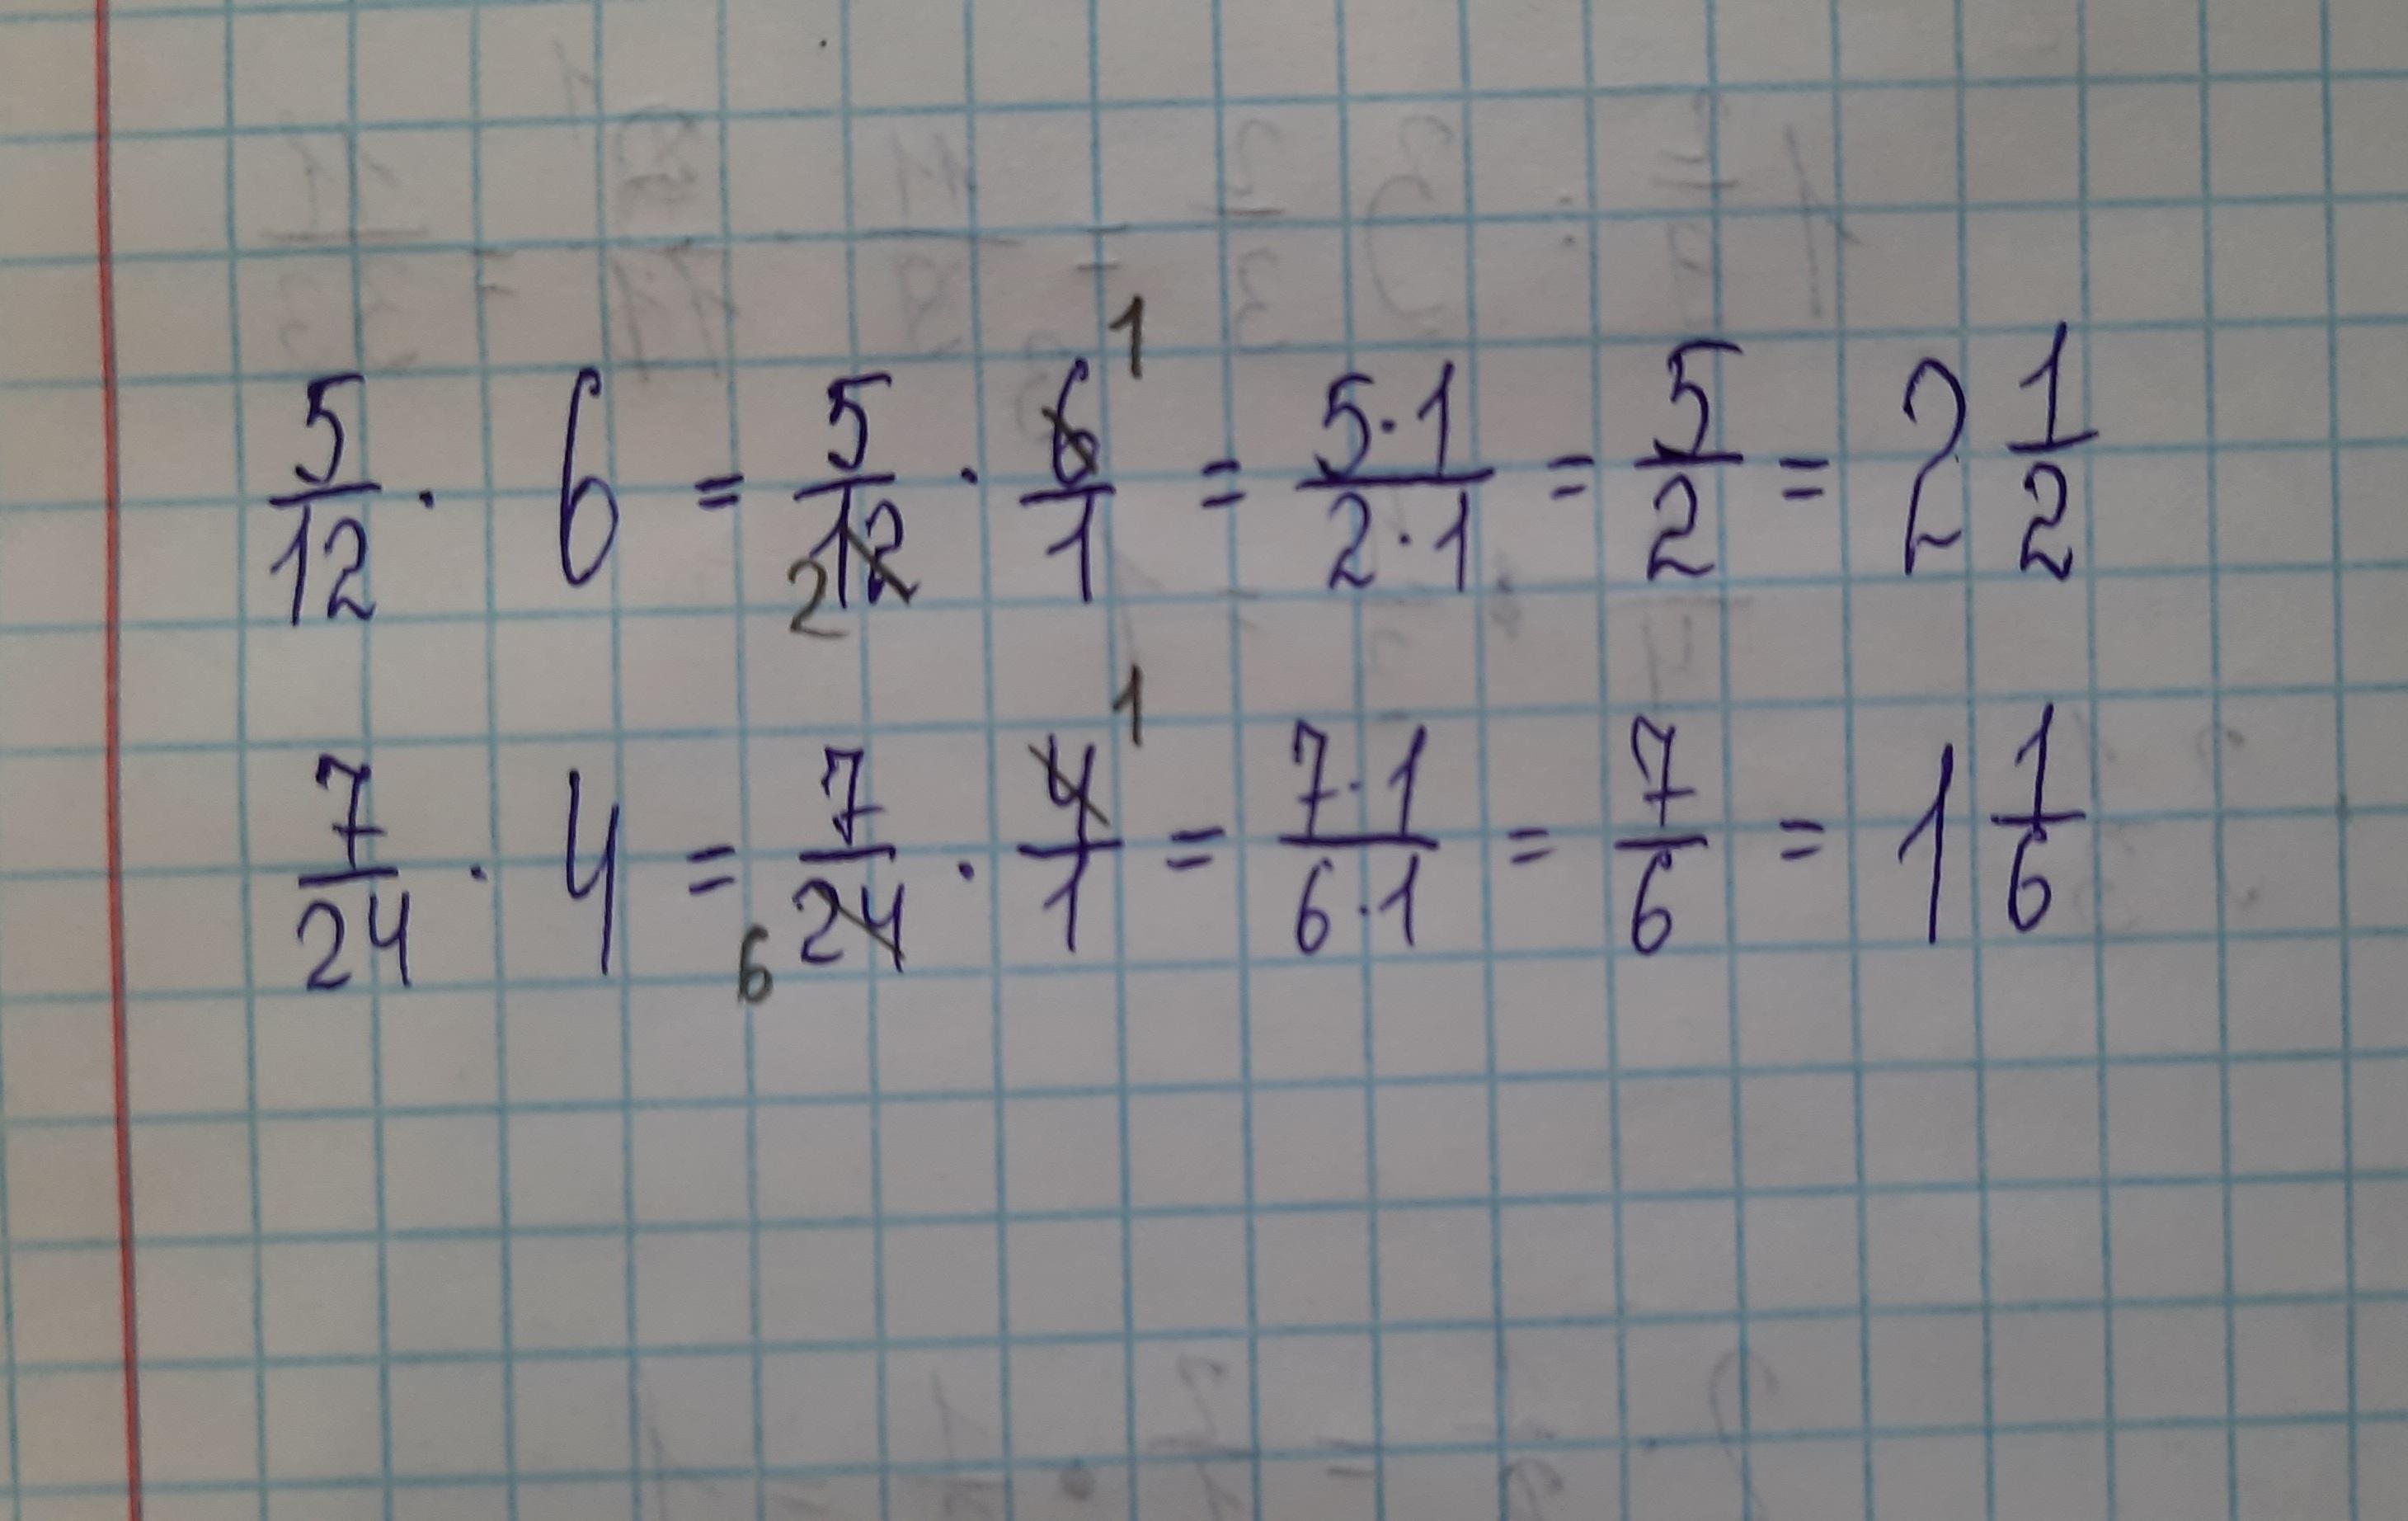 5/12 · 6 = 5/12 2 · 6/1 1 = 5·1/2·1 = 5/2 = 2 1/2
7/24 · 4 = 7/24 6 · 4/1 1 = 7·1/6·1 = 7/6 = 1 1/6